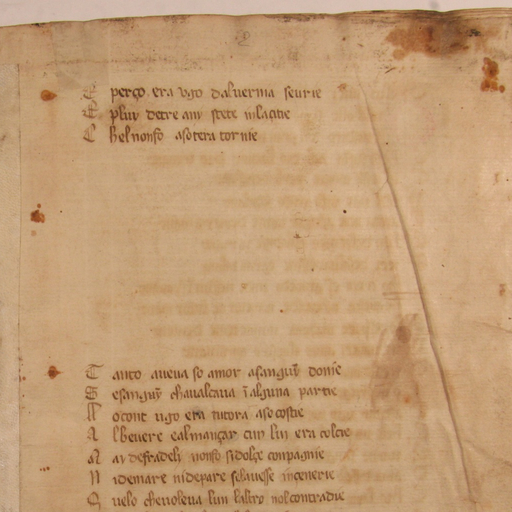 E perço era ugo daluernia seurie
E plui detre ani stete inlacitie
C hel nonfo asotera tornie
T anto aueua so amor asanguī donie
S esanguȳ chaualcaua ī alguna partie
ll o cont ugo era tutora aso costie
A lbeuere e almançar cum lui era colcie
N ai de fradeli nonfo si dolçe conpagnie
N i de mare ni de pare se lauesse inçenerie
S uelo cheuoleua lun laltro nol contradie